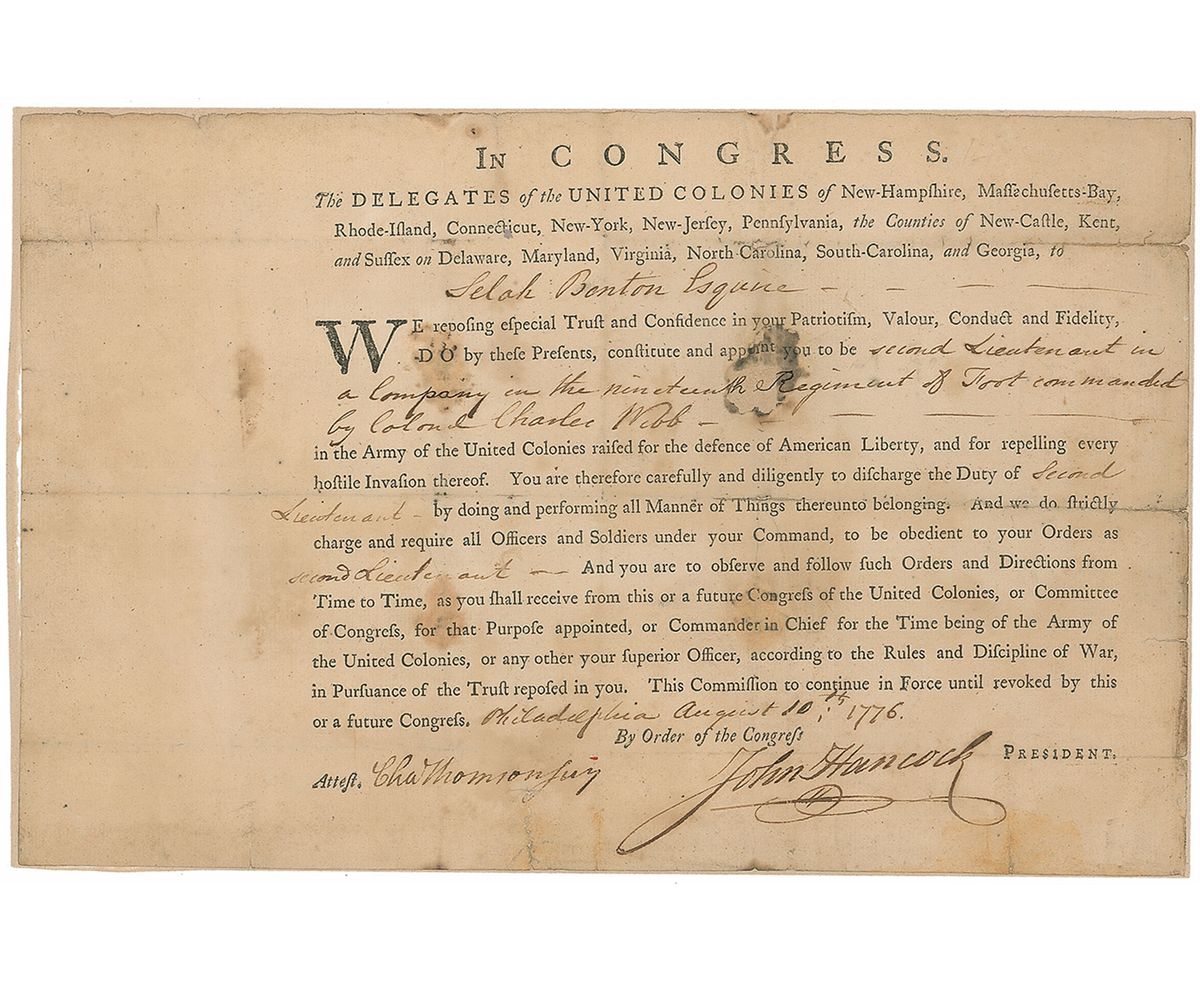 In CONGRESS.
The DELEGATES of the UNITED COLONIES of New-Hampſhire, Maſſachuſetts-Bay,
Rhode-Iſland, Connecticut, New-York, New-Jerſey, Pennſylvania, the Counties of New-Caſtle, Kent,
and Suſſex on Delaware, Maryland, Virginia, North-Carolina, South-Carolina, and Georgia, to
Selah Benton Esquire - - - -
WE repoſing eſpecial Truſt and Confidence in your Patriotiſm, Valour, Conduct and Fidelity,
DO by theſe Preſents, conſtitute and appoint you to be second Lieutenant in
a Company in the nineteenth Regiment of Foot commanded
by Colonel Charles Webb - - - - -
in the Army of the United Colonies raiſed for the defence of American Liberty, and for repelling every
hoſtile Invaſion thereof. You are therefore carefully and diligently to diſcharge the Duty of second
Lieutenant - by doing and performing all Manner of Things thereunto belonging. And we do ſtrictly
charge and require all Officers and Soldiers under your Command, to be obedient to your Orders as
second Lieutenant — And you are to obſerve and follow ſuch Orders and Directions from
Time to Time, as you ſhall receive from this or a future Congreſs of the United Colonies, or Committee
of Congreſs, for that Purpoſe appointed, or Commander in Chief for the Time being of the Army of
the United Colonies, or any other your ſuperior Officer, according to the Rules and Diſcipline of War,
in Purſuance of the Truſt repoſed in you. This Commiſſion to continue in Force until revoked by this
or a future Congreſs. Philadelphia August 10th, 1776.
By Order of the Congreſs
John Hancock PRESIDENT.
Atteſt. Chas Thomson Secy